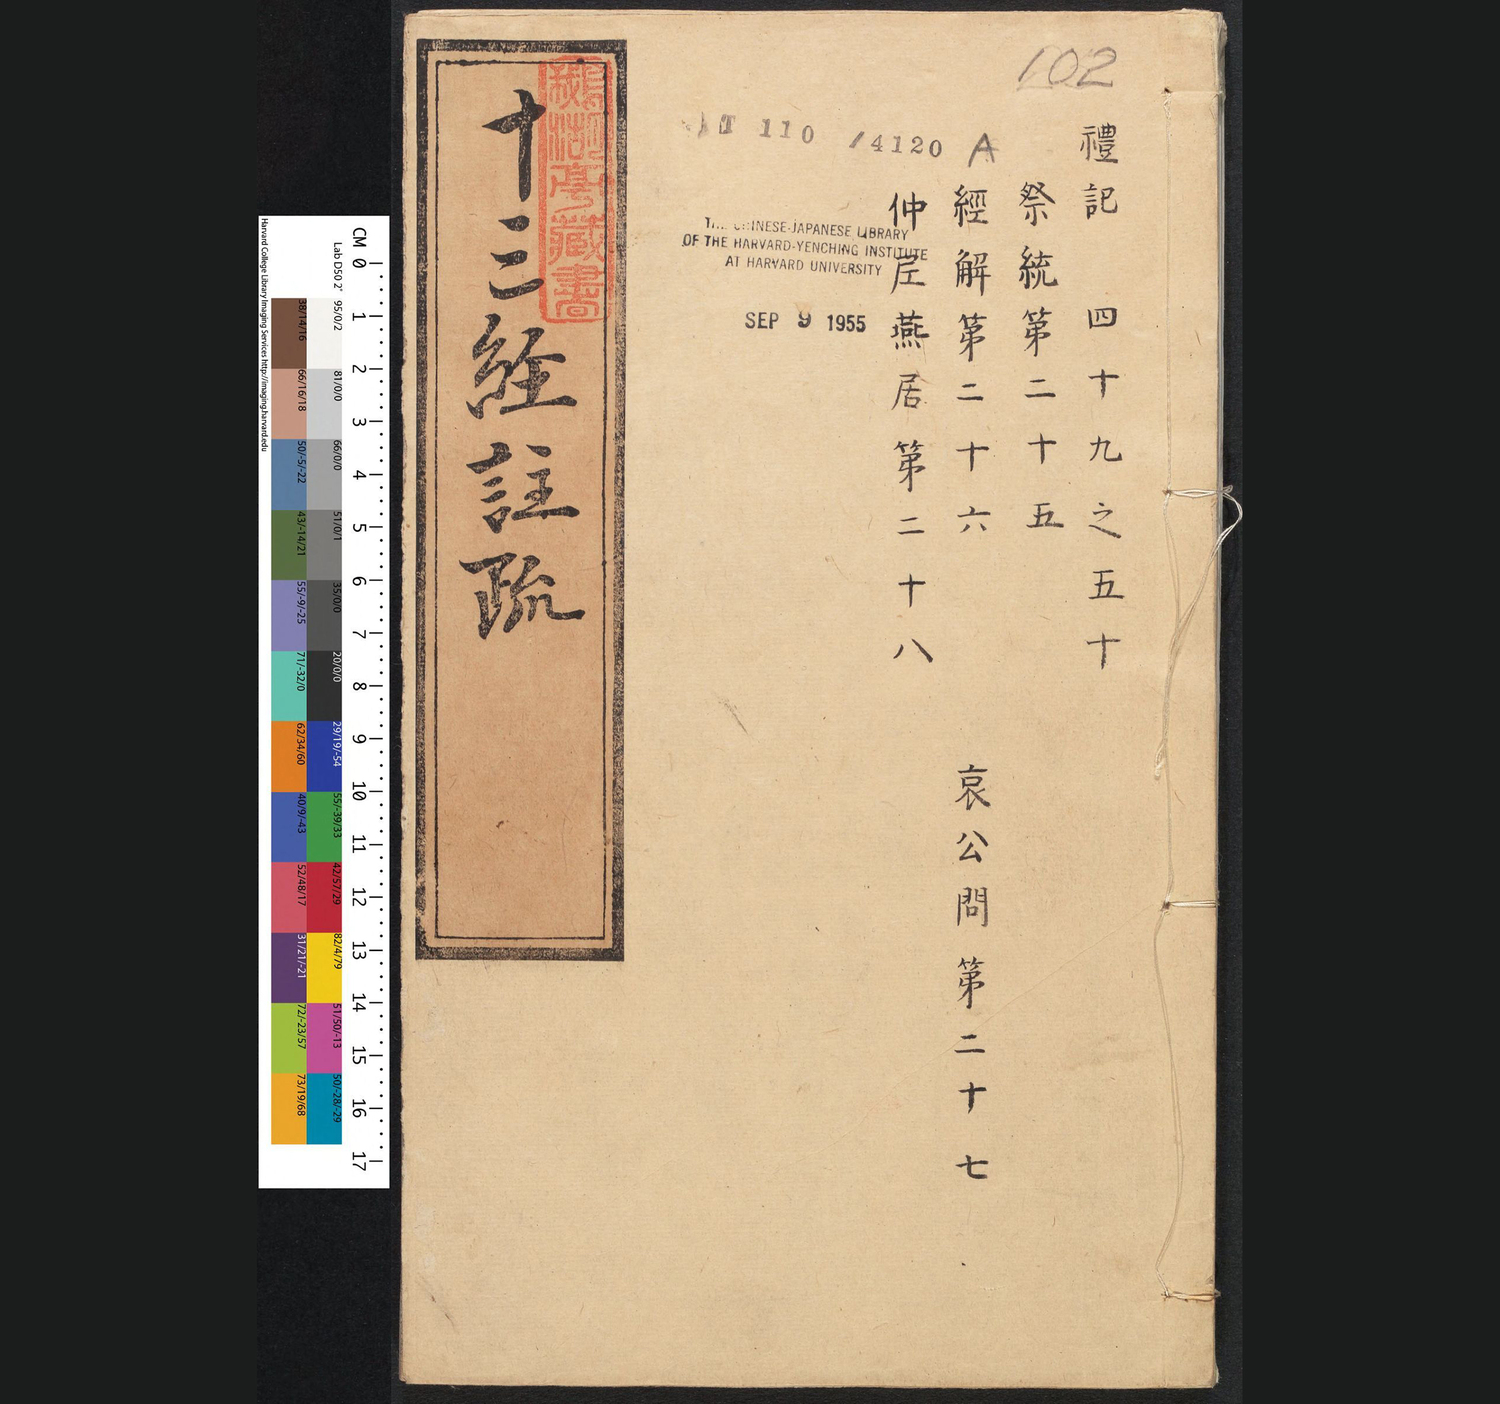 102
禮記 四十九之五十
祭統第二十五
經解第二十六 哀公問第二十七
仲尼燕居第二十八
T 110 /4120 A
CHINESE-JAPANESE LIBRARY
OF THE HARVARD-YENCHING INSTITUTE
AT HARVARD UNIVERSITY
SEP 9 1955
十三經註疏
亭藏書
CM 0 1 2 3 4 5 6 7 8 9 10 11 12 13 14 15 16 17
Lab D50 2° 95/0/2 81/0/0 66/0/0 51/0/1 35/0/0 20/0/0 29/19/-54 55/-39/33 42/57/29 82/4/79 51/50/-13 50/-28/-29
38/14/16 66/16/18 50/-5/-22 43/-14/21 55/-9/-25 71/-32/0 62/34/60 40/9/-43 52/48/17 31/21/-21 72/-23/57 73/19/68
Harvard College Library Imaging Services http://imaging.harvard.edu